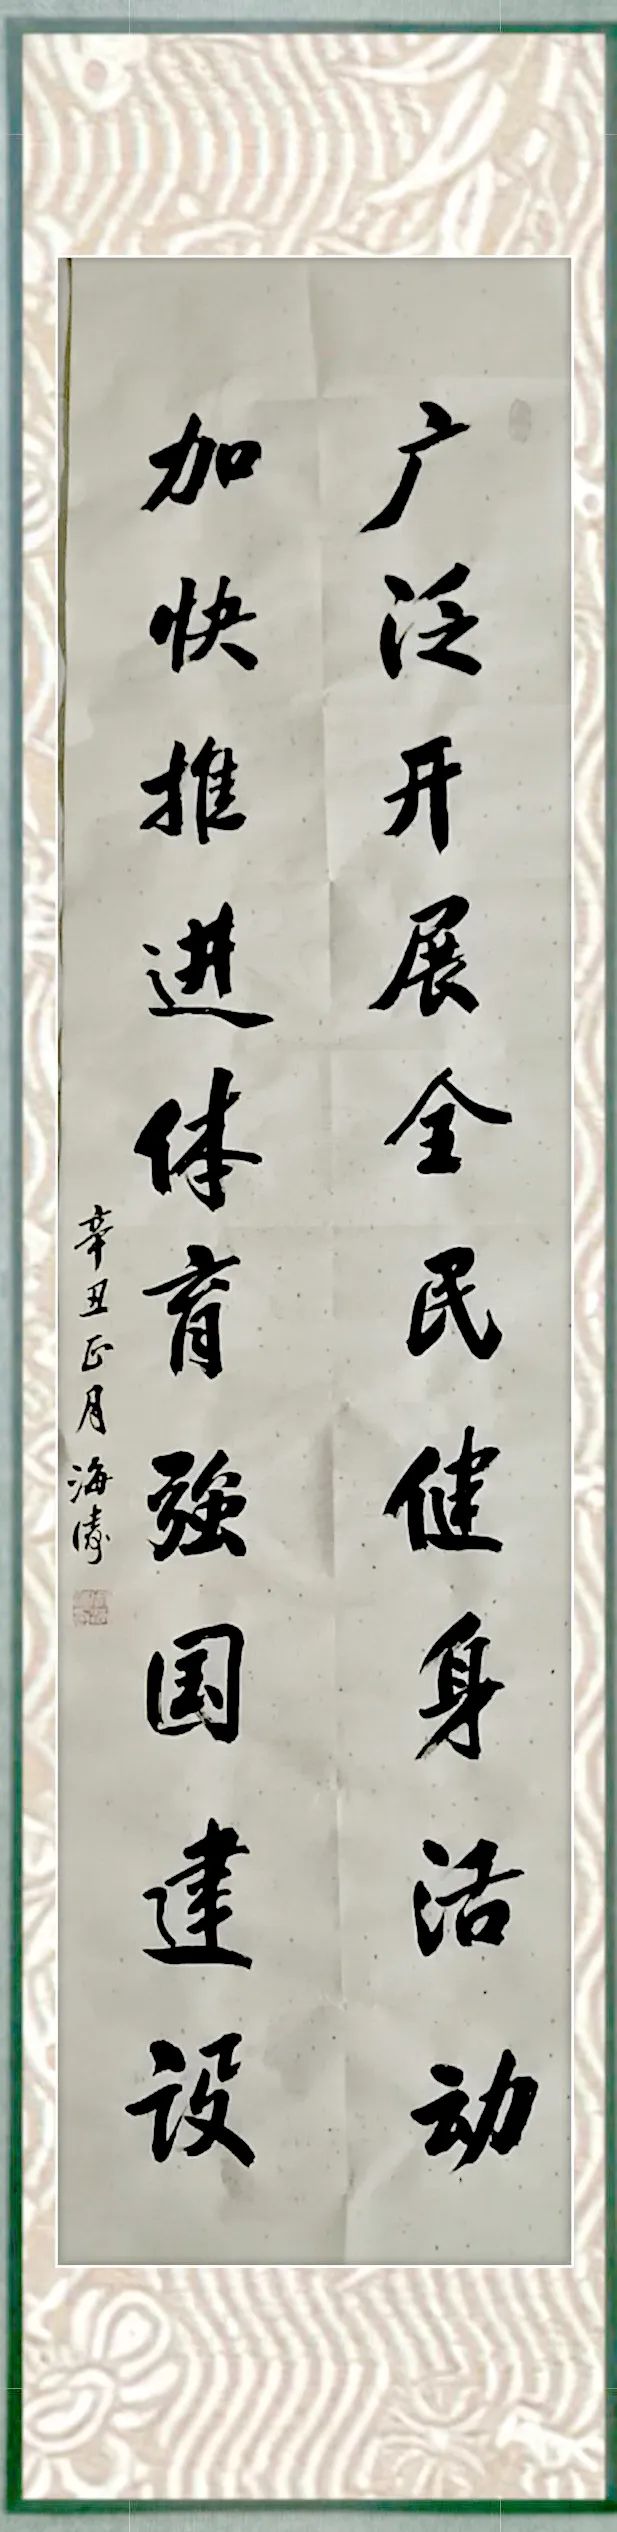 广泛开展全民健身活动
加快推进体育强国建设
辛丑正月海涛